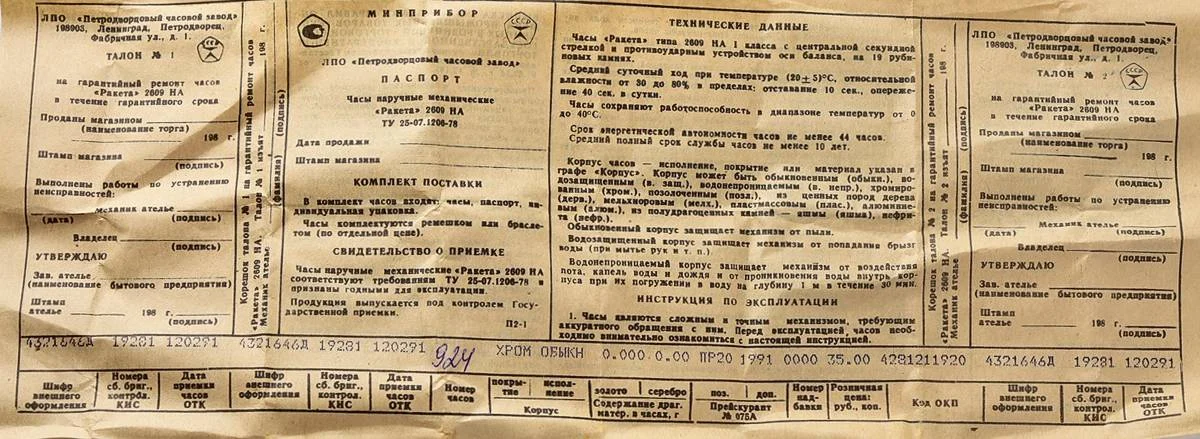 ЛПО «Петродворцовый часовой завод»
198903, Ленинград, Петродворец,
Фабричная ул., д. 1.
ТАЛОН № 1
на гарантийный ремонт часов
«Ракета» 2609 НА
в течение гарантийного срока
Проданы магазином
(наименование торга)
198 г.
Штамп магазина
(подпись)
Выполнены работы по устранению
неисправностей:
механик ателье
(дата) (подпись)
Владелец
(подпись)
УТВЕРЖДАЮ
Зав. ателье
(наименование бытового предприятия)
Штамп
ателье 198 г.
(подпись)
Корешок талона № 1 на гарантийный ремонт часов
«Ракета» 2609 НА. Талон № 1 изъят 198 г.
Механик ателье
(фамилия) (подпись)
МИНПРИБОР
СССР
ЛПО «Петродворцовый часовой завод»
ПАСПОРТ
Часы наручные механические
«Ракета» 2609 НА
ТУ 25-07.1206-78
Дата продажи
Штамп магазина
КОМПЛЕКТ ПОСТАВКИ
В комплект часов входят: часы, паспорт, ин-
дивидуальная упаковка.
Часы комплектуются ремешком или брасле-
том (по отдельной цене).
СВИДЕТЕЛЬСТВО О ПРИЕМКЕ
Часы наручные механические «Ракета» 2609 НА
соответствуют требованиям ТУ 25-07.1206-78 и
признаны годными для эксплуатации.
Продукция выпускается под контролем Госу-
дарственной приемки.
П2-1
ТЕХНИЧЕСКИЕ ДАННЫЕ
Часы «Ракета» типа 2609 НА 1 класса с центральной секундной
стрелкой и противоударным устройством оси баланса, на 19 руби-
новых камнях.
Средний суточный ход при температуре (20±5)°С, относительной
влажности от 30 до 80% в пределах: отставание 10 сек., опереже-
ние 40 сек. в сутки.
Часы сохраняют работоспособность в диапазоне температур от 0
до 40°С.
Срок энергетической автономности часов не менее 44 часов.
Средний полный срок службы часов не менее 10 лет.
Корпус часов — исполнение, покрытие или материал указан в
графе «Корпус». Корпус может быть обыкновенным (обыкн.), во-
дозащищенным (в. защ.), водонепроницаемым (в. непр.), хромиро-
ванным (хром.), позолоченным (позл.), из ценных пород дерева
(дерв.), мельхиоровым (мелх.), пластмассовым (плас.), алюминие-
вым (алюм.), из полудрагоценных камней — яшмы (яшма), нефри-
та (нефр.).
Обыкновенный корпус защищает механизм от пыли.
Водозащищенный корпус защищает механизм от попадания брызг
воды (при мытье рук и т. п.).
Водонепроницаемый корпус защищает механизм от воздействия
пота, капель воды и дождя и от проникновения воды внутрь кор-
пуса при их погружении в воду на глубину 1 м в течение 30 мин.
ИНСТРУКЦИЯ ПО ЭКСПЛУАТАЦИИ
1. Часы являются сложным и точным механизмом, требующим
аккуратного обращения с ним. Перед эксплуатацией часов необ-
ходимо внимательно ознакомиться с настоящей инструкцией.
Корешок талона № 2 на гарантийный ремонт часов
«Ракета» 2609 НА. Талон № 2 изъят 198 г.
Механик ателье
(фамилия) (подпись)
ЛПО «Петродворцовый часовой завод»
198903, Ленинград, Петродворец,
Фабричная ул., д. 1
ТАЛОН № 2
на гарантийный ремонт часов
«Ракета» 2609 НА
в течение гарантийного срока
Проданы магазином
(наименование торга)
198 г.
Штамп магазина
(подпись)
Выполнены работы по устранению
неисправностей:
Механик ателье
(дата) (подпись)
Владелец
(подпись)
УТВЕРЖДАЮ
Зав. ателье
(наименование бытового предприятия)
Штамп
ателье 198 г.
(подпись)
4321646Д 19281 120291 4321646Д 19281 120291 924 ХРОМ ОБЫКН 0.000 0.00 ПР20 1991 0000 35.00 4281211920 4321646Д 19281 120291
Шифр внешнего оформления
Номера сб. бриг., контрол. КИС
Дата приемки часов ОТК
Шифр внешнего оформления
Номера сб. бриг., контрол. КИС
Дата приемки часов ОТК
Номер часов
покры-тие
испол-нение
Корпус
золото
серебро
Содержание драг. матер. в часах, г
поз.
доп.
Прейскурант № 075А
Номер над-бавки
Розничная цена: руб., коп.
Код ОКП
Шифр внешнего оформления
Номера сб. бриг., контрол. КИС
Дата приемки часов ОТК